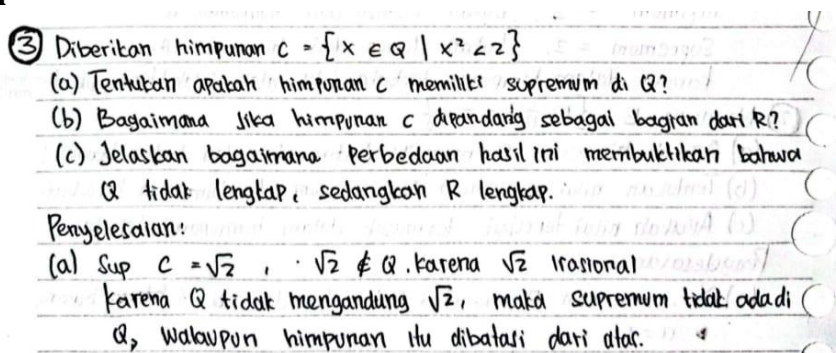 ③ Diberikan himpunan C = {x ∈ Q | x² < 2}
(a) Tentukan apakah himpunan C memiliki supremum di Q?
(b) Bagaimana Jika himpunan C dipandang sebagai bagian dari R?
(c) Jelaskan bagaimana Perbedaan hasil ini membuktikan bahwa
Q tidak lengkap, sedangkan R lengkap.
Penyelesaian:
(a) Sup C = √2 , √2 ∉ Q. Karena √2 Irasional
Karena Q tidak mengandung √2, maka supremum tidak ada di
Q, walaupun himpunan itu dibatasi dari atas.